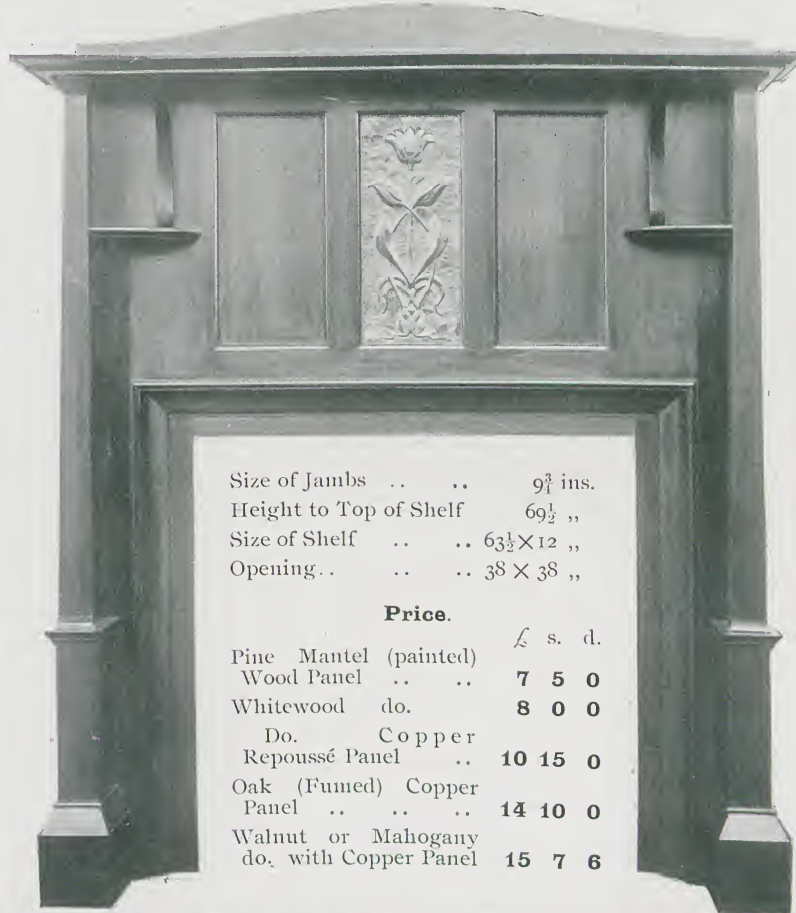 Size of Jambs .. .. 9¾ ins.
Height to Top of Shelf 69½ ,,
Size of Shelf .. .. 63½ × 12 ,,
Opening.. .. .. 38 × 38 ,,
Price.
£ s. d.
Pine Mantel (painted)
Wood Panel .. .. 7 5 0
Whitewood do. 8 0 0
Do. Copper
Repoussé Panel .. 10 15 0
Oak (Fumed) Copper
Panel .. .. .. 14 10 0
Walnut or Mahogany
do. with Copper Panel 15 7 6